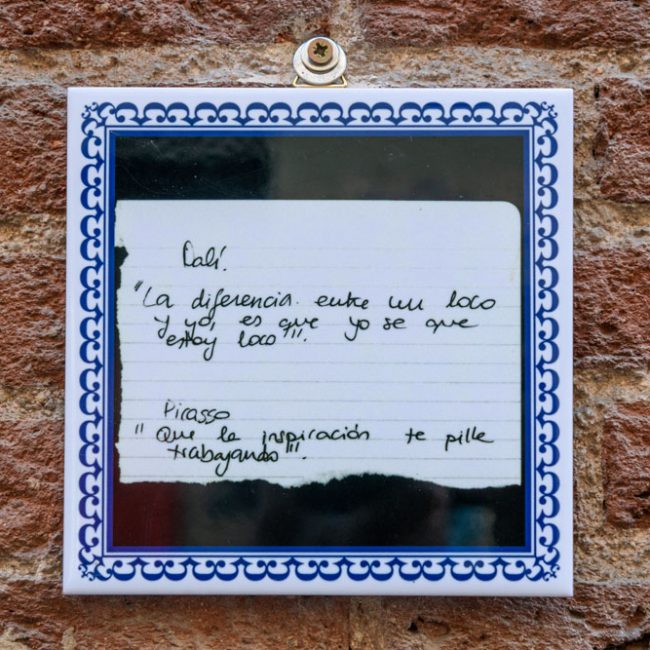 Dalí.
"La diferencia entre un loco
y yo, es que yo se que
estoy loco".
Picasso
"Que la inspiración te pille
trabajando".